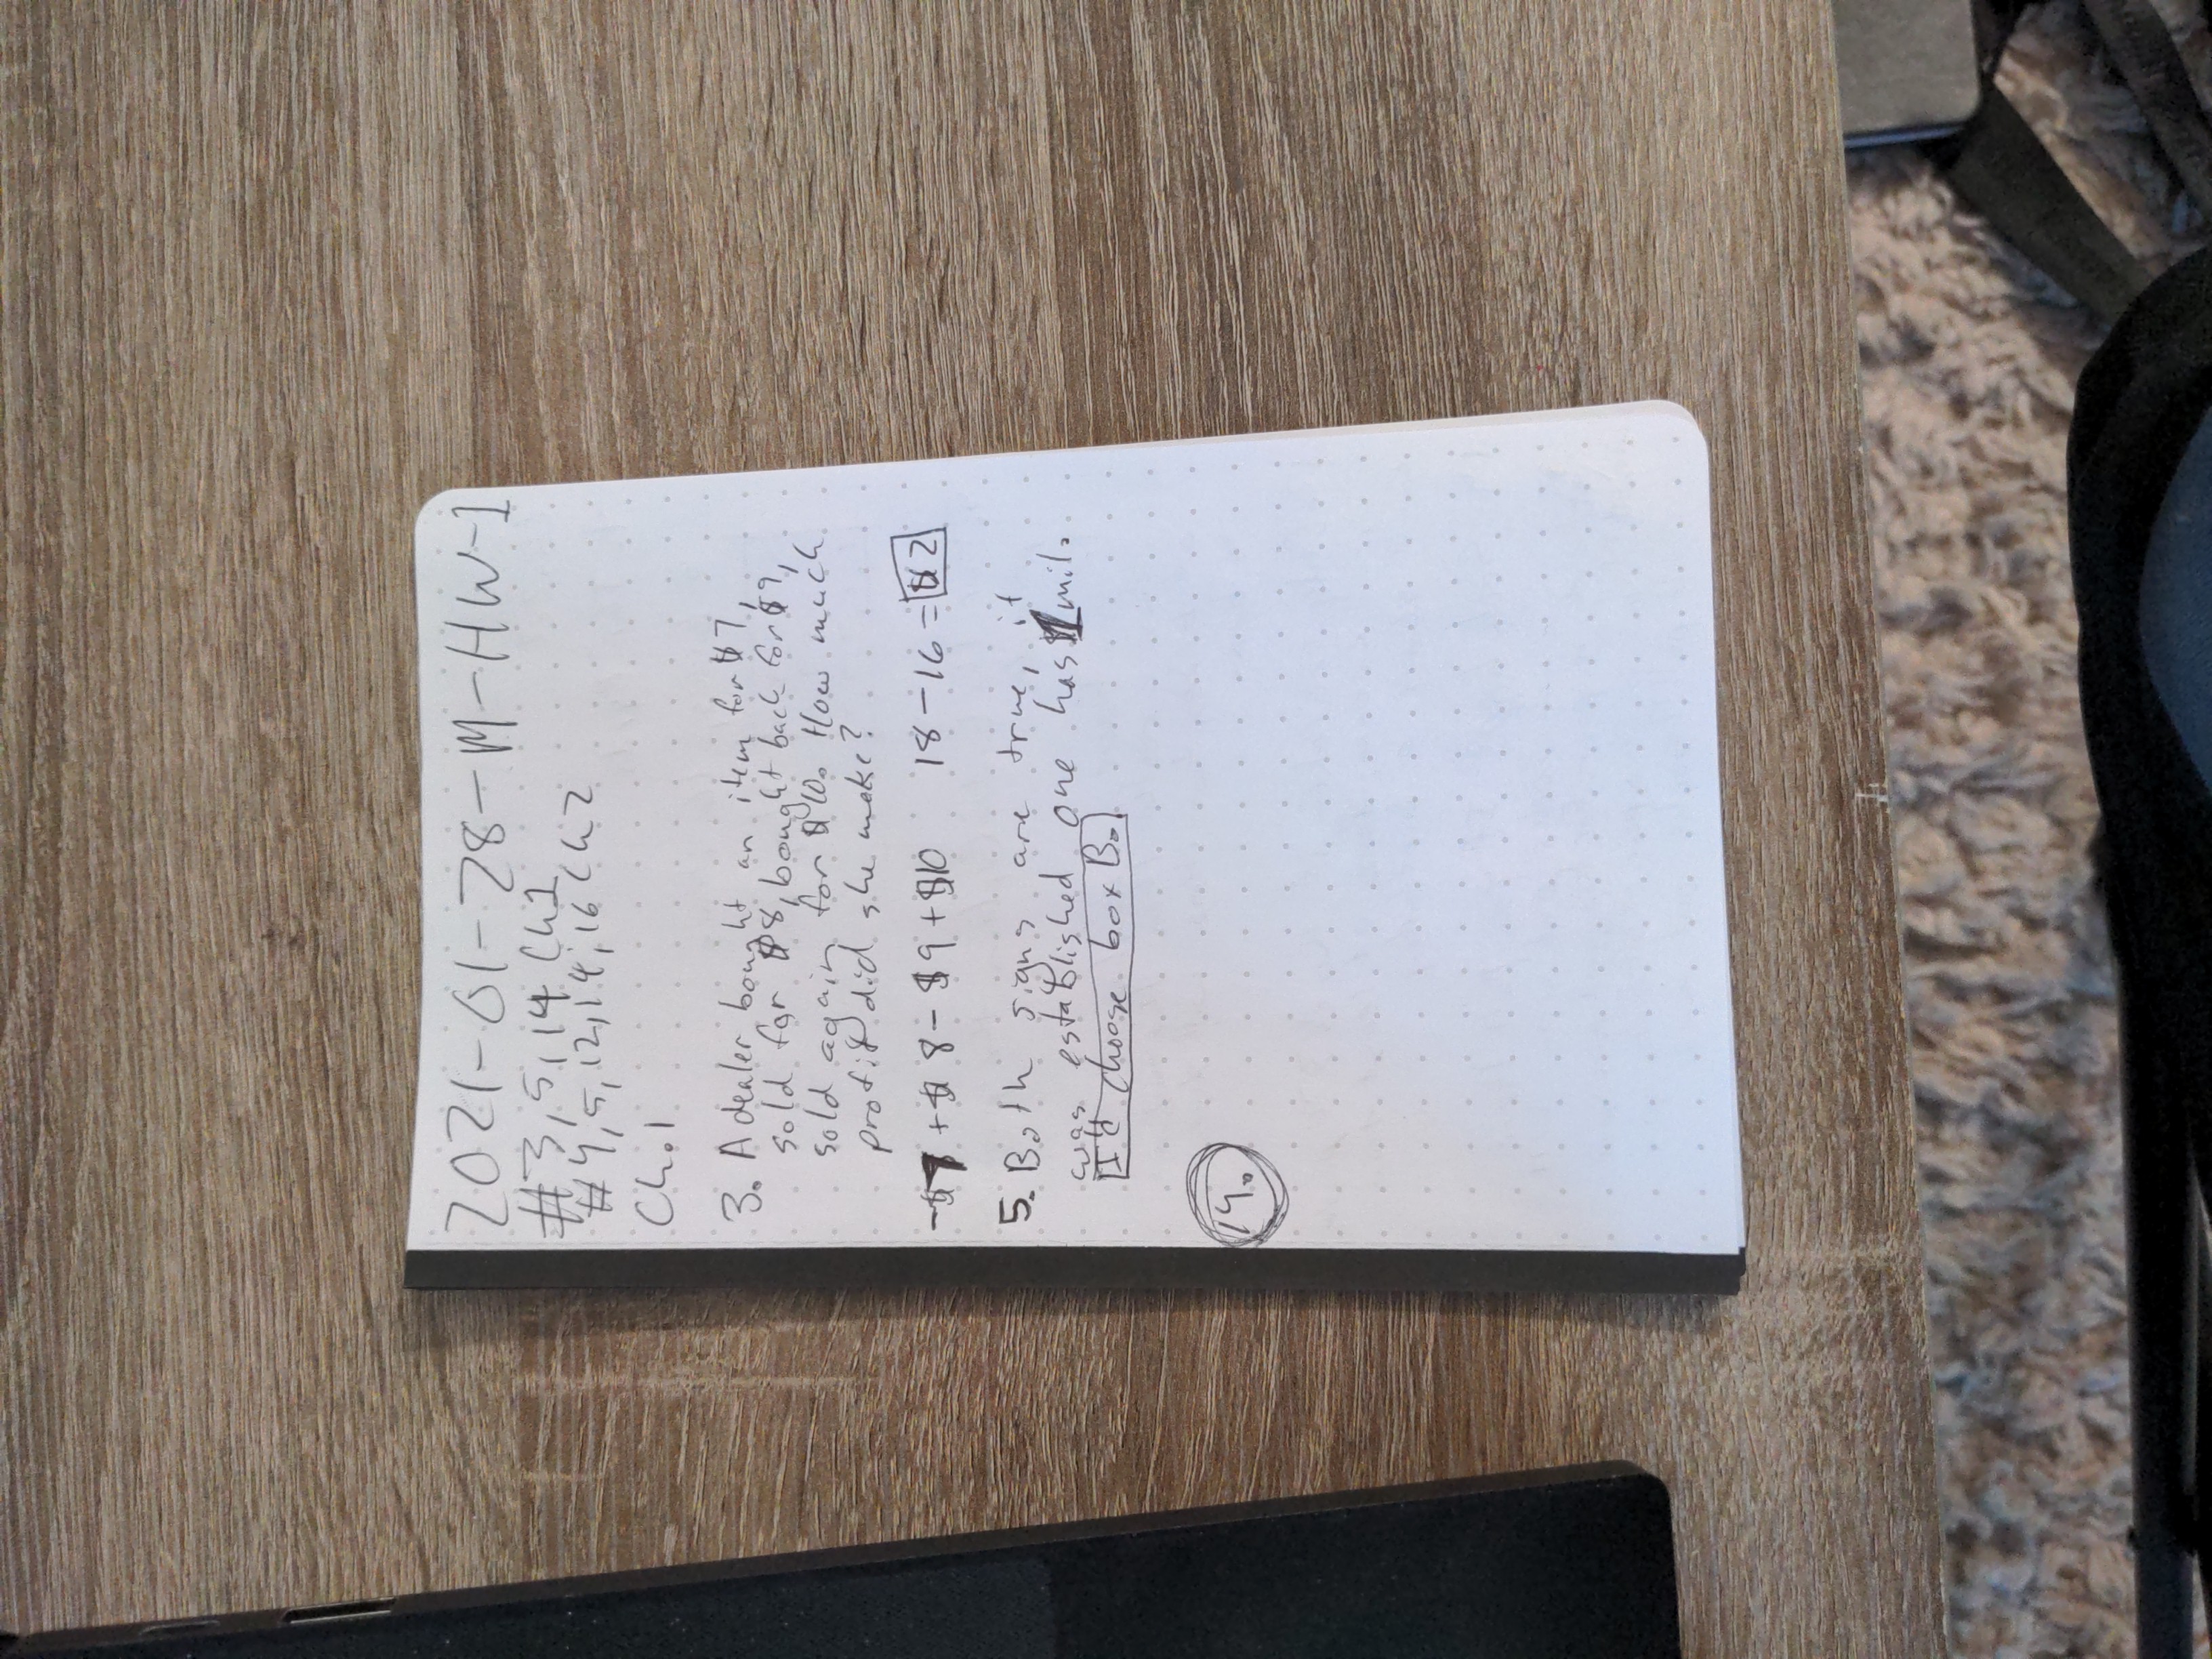 2021-01-28-M-HW-1
#3, 5, 14 Ch1
#4, 5, 12, 14, 16 Ch2
Ch.1
3. A dealer bought an item for $7,
sold for $8, bought back for $9,
sold again for $10. How much
profit did she make?
-$7 + $8 - $9 + $10 18-16 = $2
5. Both signs are true, it
was established one has $1 mil.
I'd choose box B.
14.